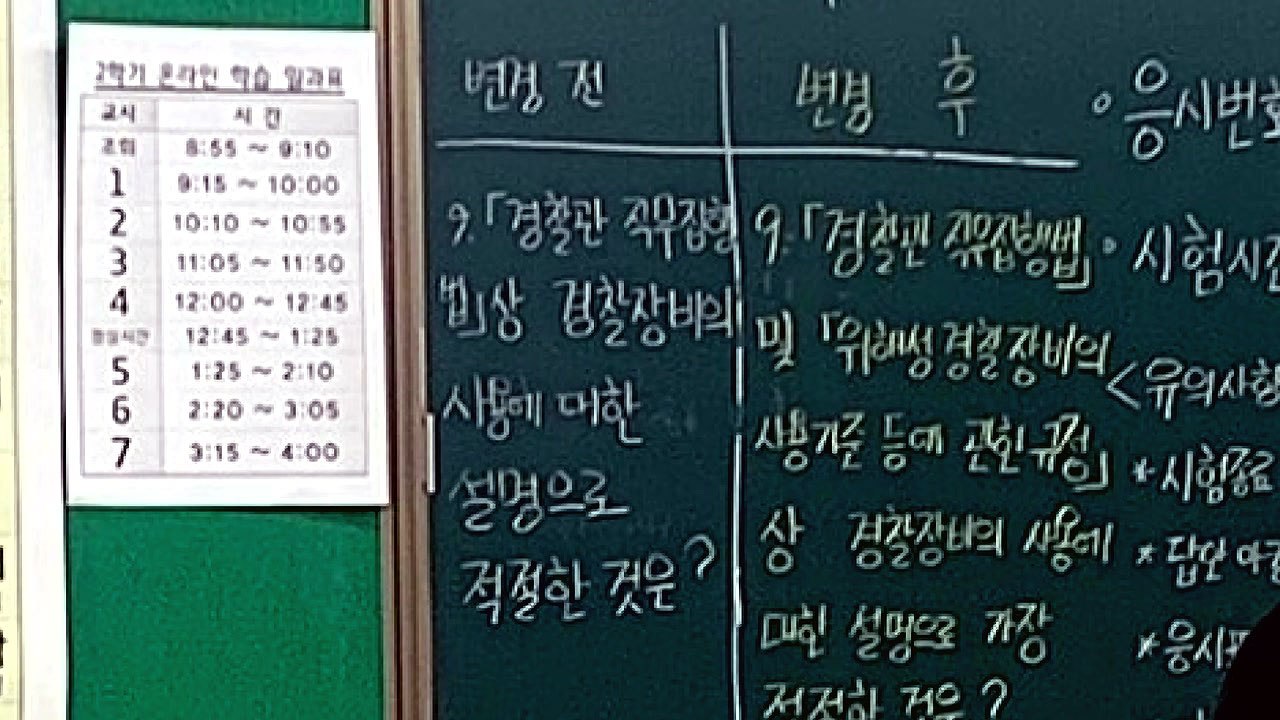 2학기 온라인 학습 일과표
교시 시 간
조회 8:55 ~ 9:10
1 9:15 ~ 10:00
2 10:10 ~ 10:55
3 11:05 ~ 11:50
4 12:00 ~ 12:45
점심시간 12:45 ~ 1:25
5 1:25 ~ 2:10
6 2:20 ~ 3:05
7 3:15 ~ 4:00
변경 전
9.「경찰관 직무집행
법」상 경찰장비의
사용에 대한
설명으로
적절한 것은?
변경 후
9.「경찰관 직무집행법」
및 「위해성 경찰장비의
사용기준 등에 관한 규정」
상 경찰장비의 사용에
대한 설명으로 가장
적절한 것은?
◦ 응시번호
◦ 시험시간
<유의사항
* 시험종료
* 답안
* 응시표